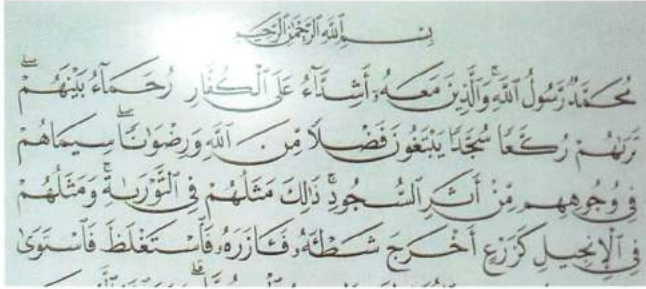 بِسْمِ ٱللَّهِ ٱلرَّحْمَٰنِ ٱلرَّحِيمِ
مُحَمَّدٌ رَّسُولُ ٱللَّهِ ۚ وَٱلَّذِينَ مَعَهُۥٓ أَشِدَّآءُ عَلَى ٱلْكُفَّارِ رُحَمَآءُ بَيْنَهُمْ ۖ
تَرَىٰهُمْ رُكَّعًا سُجَّدًا يَبْتَغُونَ فَضْلًا مِّنَ ٱللَّهِ وَرِضْوَٰنًا ۖ سِيمَاهُمْ
فِى وُجُوهِهِم مِّنْ أَثَرِ ٱلسُّجُودِ ۚ ذَٰلِكَ مَثَلُهُمْ فِى ٱلتَّوْرَىٰةِ ۚ وَمَثَلُهُمْ
فِى ٱلْإِنجِيلِ كَزَرْعٍ أَخْرَجَ شَطْـَٔهُۥ فَـَٔازَرَهُۥ فَٱسْتَغْلَظَ فَٱسْتَوَىٰ